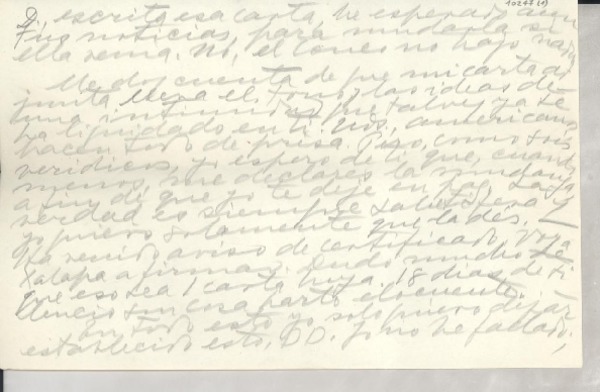 10247 (1)
D., escrita esa carta, he esperado aun
tus noticias, para mandarla si
ella venía. No, el lunes no hajo nada
Me doy cuenta de que mi carta ad-
junta lleva el tono y las ideas de
una intimidad que tal vez ya se
ha liquidado en ti. Uds., americanos,
hacen todo de prisa. Pero, como sois
verídicos, yo espero de ti que, cuando
menos, me declares la mudanza
a fin de que yo te deje en paz. La
verdad es siempre salud y
yo quiero solamente que la des.
Ha venido aviso de certificado. Voy a
Jalapa a firmar. Dudo mucho de
que eso sea 1 carta tuya. 18 días de ti
silencio son cosa harto elocuente.
En todo esto yo solo quiero dejar
establecido esto, D. D. Yo no he fallado,